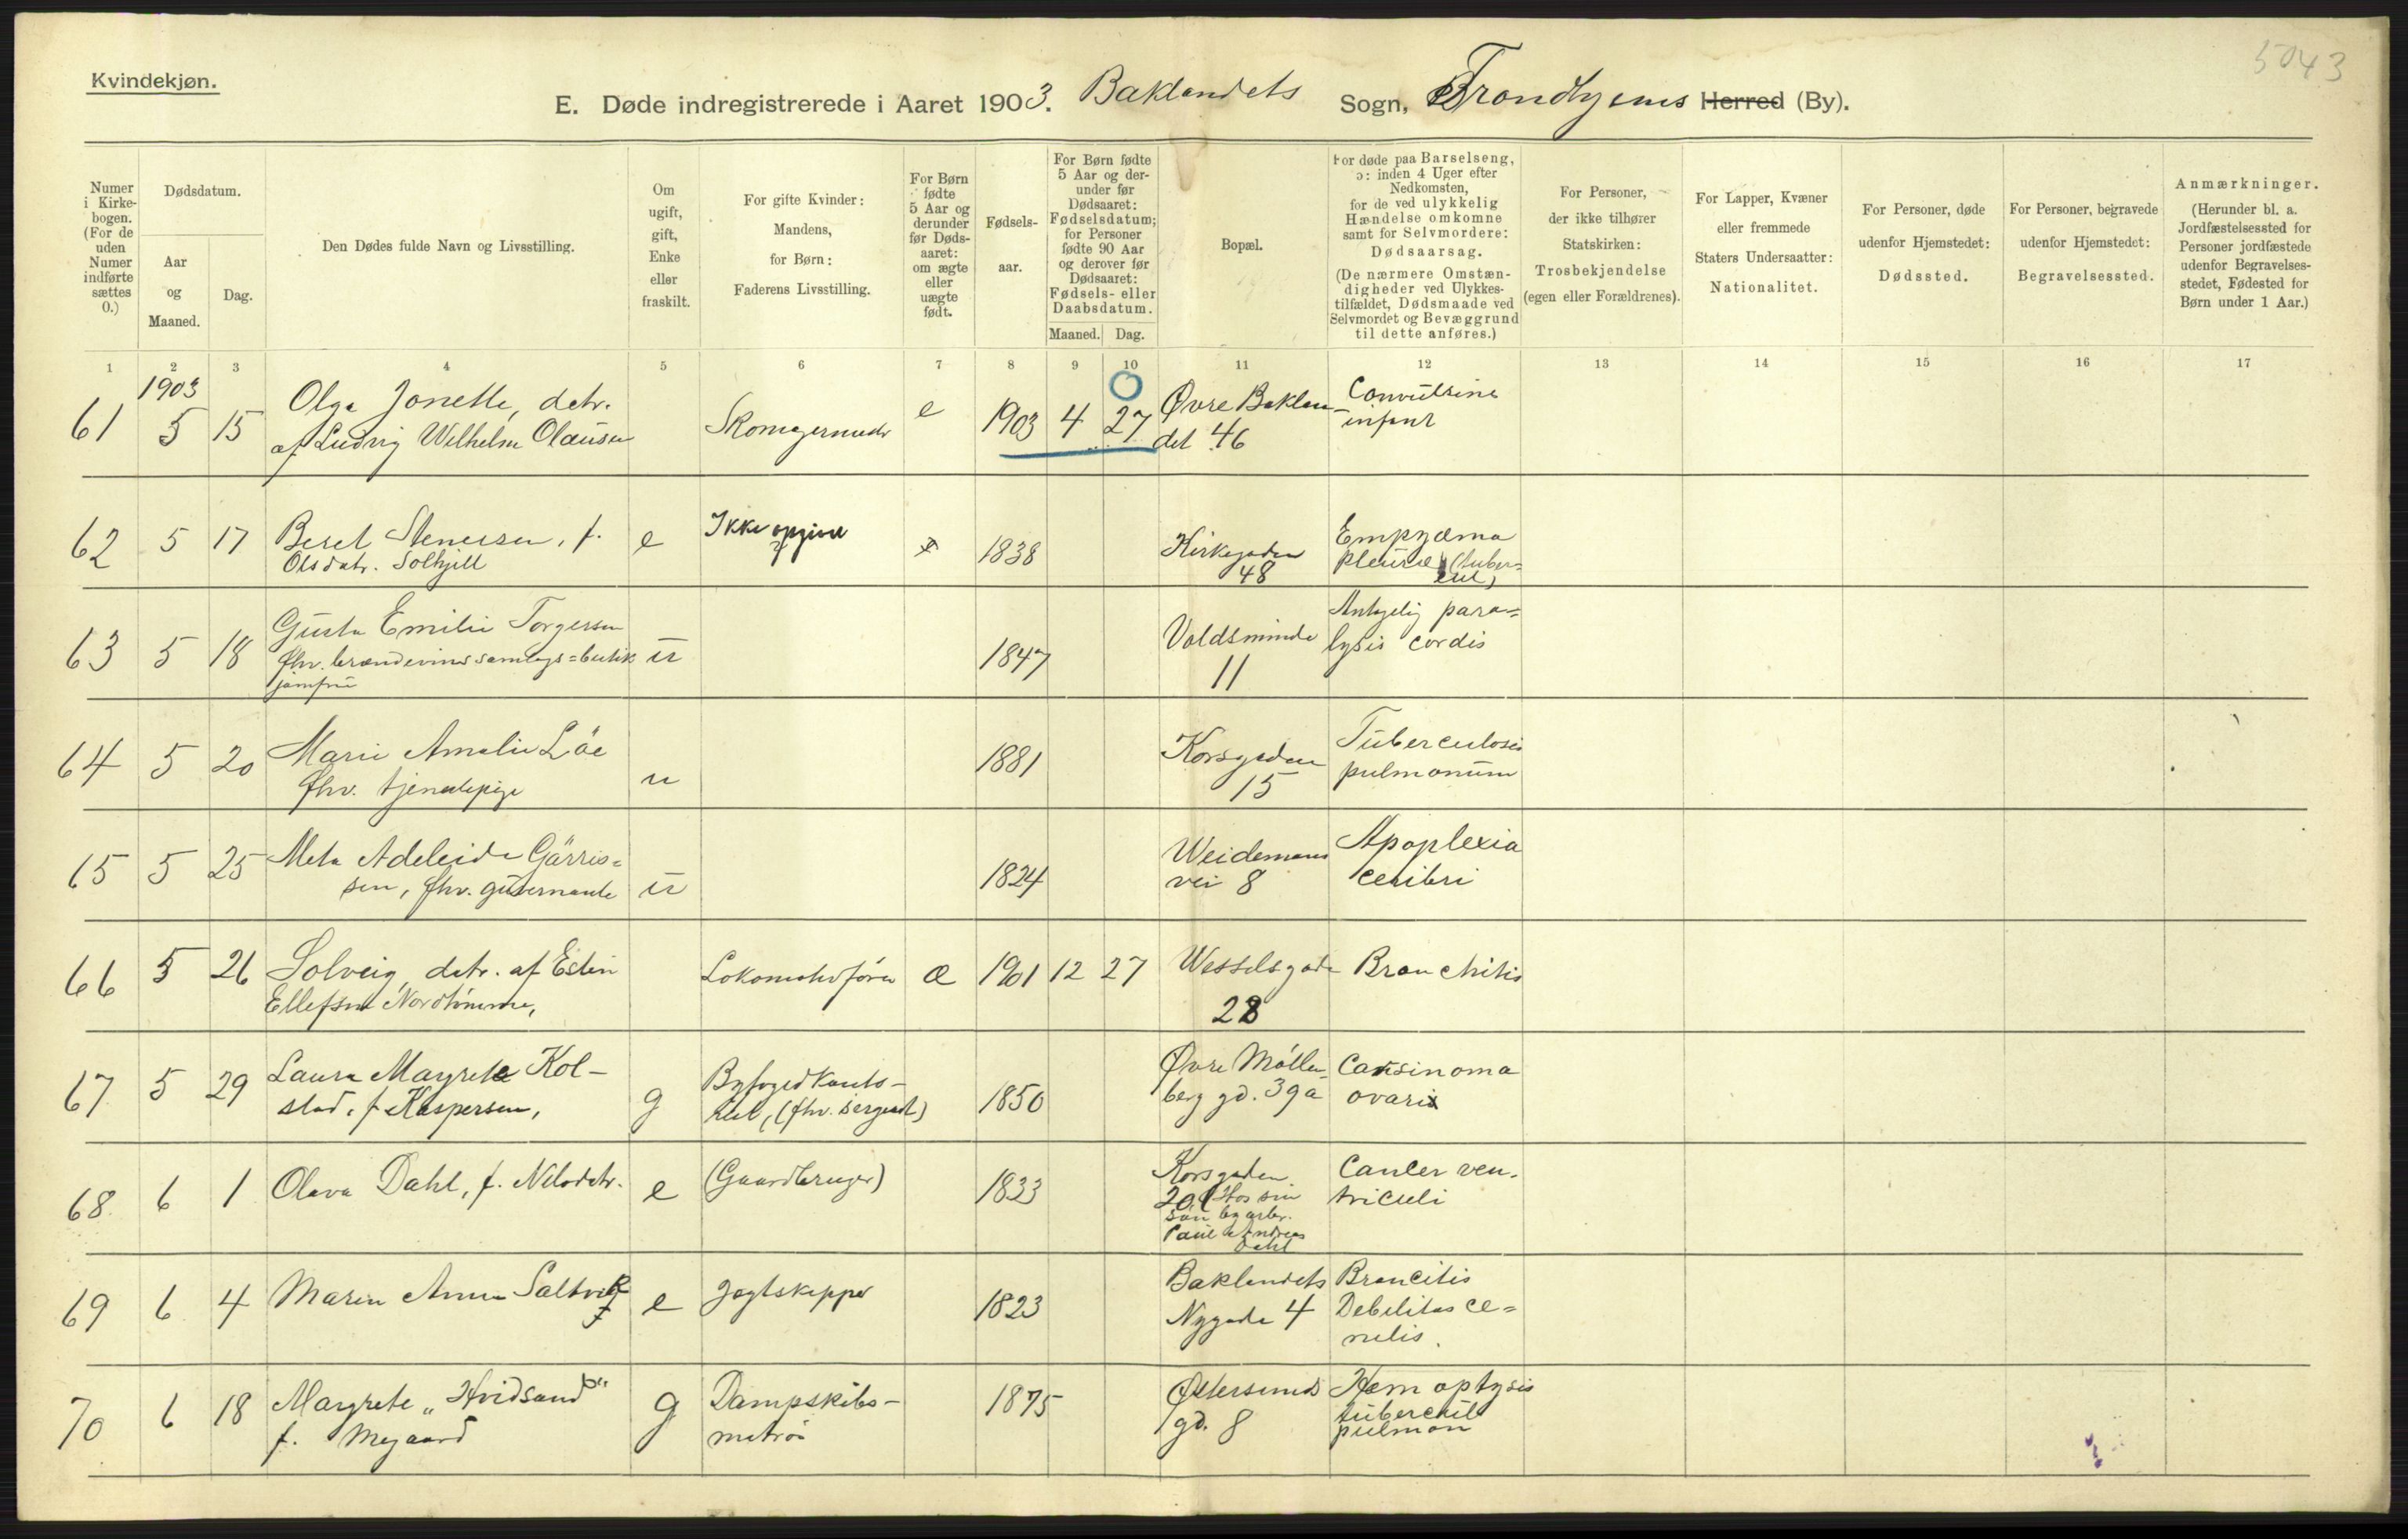 5043
Kvindekjøn.
E. Døde indregistrerede i Aaret 1903. Baklandets Sogn, Trondhjems Herred (By).
Numer i Kirkebogen. (For de uden Numer indførte sættes 0.)
Dødsdatum.
Aar og Maaned.
Dag.
Den Dødes fulde Navn og Livsstilling.
Om ugift, gift, Enke eller fraskilt.
For gifte Kvinder: Mandens, for Børn: Faderens Livsstilling.
For Børn fødte 5 Aar og derunder før Dødsaaret: om ægte eller uægte født.
Fødselsaar.
For Børn fødte 5 Aar og derunder før Dødsaaret: Fødselsdatum; for Personer fødte 90 Aar og derover før Dødsaaret: Fødsels- eller Daabsdatum.
Maaned. Dag.
Bopæl.
For døde paa Barselseng, ɔ: inden 4 Uger efter Nedkomsten, for de ved ulykkelig Hændelse omkomne samt for Selvmordere: Dødsaarsag.
(De nærmere Omstændigheder ved Ulykkestilfældet, Dødsmaade ved Selvmordet og Bevæggrund til dette anføres.)
For Personer, der ikke tilhører Statskirken: Trosbekjendelse (egen eller Forældrenes).
For Lapper, Kvæner eller fremmede Staters Undersaatter: Nationalitet.
For Personer, døde udenfor Hjemstedet: Dødssted.
For Personer, begravede udenfor Hjemstedet: Begravelsessted.
Anmærkninger.
(Herunder bl. a. Jordfæstelsessted for Personer jordfæstede udenfor Begravelsesstedet, Fødested for Børn under 1 Aar.)
1 2 3 4 5 6 7 8 9 10 11 12 13 14 15 16 17
1903
61 5 15 Olga Jonette, datr. af Ludvig Wilhelm Olausen Skomagersvend e 1903 4 27 Øvre Baklandet 46 Convulsine infant
62 5 17 Beret Stenersen, f. Olsdatr. Solhjell e Ikke opgivet 1838 Kirkegaden 48 Empyæma pleuræ (tubercul)
63 5 18 Gusta Emilie Torgersen fhv. brændevinssamlags=butik jomfru u 1847 Voldsminde 11 Antagelig para=lysis cordis
64 5 20 Marie Amalie Löe fhv. tjenestepige u 1881 Korsgaden 15 Tuberculosis pulmonum
65 5 25 Meta Adeleide Gärris=sen, fhv. guvernante u 1824 Weidemans vei 8 Apoplexia ceribri
66 5 26 Solveig, datr. af Esten Ellefsen Nordtömme, Lokomotivfører æ 1901 12 27 Wesselsgade 28 Bronchitis
67 5 29 Laura Magrete Kol-stad, f Kaspersen, g Byfogedkonto-rist, (fhv. sergeant) 1850 Øvre Möllen-berg gd. 39a Carsinoma ovarix
68 6 1 Olava Dahl, f. Nilsdatr. e (Gaardbruger) 1833 Korsgaden 20 (Hos sin sön byarbr. Paul Andreas Dahl Canser ven-triculi
69 6 4 Maren Anna Saltvik f e Jagtskipper 1823 Baklandets Nygade 4 Broncitis Debilitas ce=nilis.
70 6 18 Magrete „Hvidsand" f. Mogaard g Dampskibs-matrös 1875 Østersunds gd. 8 Hæmoptysis tubercul pulmon